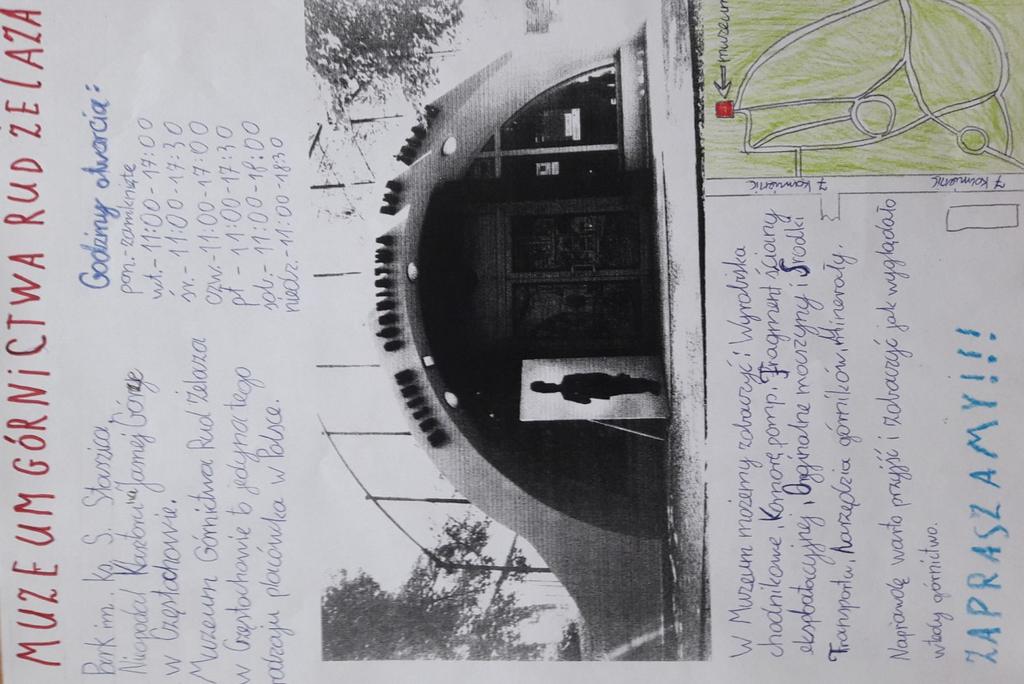 MUZEUM GÓRNICTWA RUD ŻELAZA
Park im. ks. S. Staszica
Nieopodal Klasztoru na Jasnej Górze
w Częstochowie.
Muzeum Górnictwa Rud Żelaza
w Częstochowie to jedyna tego
rodzaju placówka w Polsce.
Godziny otwarcia:
pon.- zamknięte
wt.- 11:00-17:00
śr.- 11:00-17:30
czw.-11:00-17:00
pt - 11:00-17:30
sob.- 11:00-18:00
niedz.-11:00-18:30
W Muzeum możemy zobaczyć: Wyrobiska
chodnikowe, Komorę pomp, Fragment ściany
eksploatacyjnej i Oryginalne maszyny i Środki
Transportu, Narzędzia górników, Minerały.
Naprawdę warto przyjść i zobaczyć jak wyglądało
wtedy górnictwo.
ZAPRASZAMY!!!
← muzeum
7 kamienic
7 kamienic